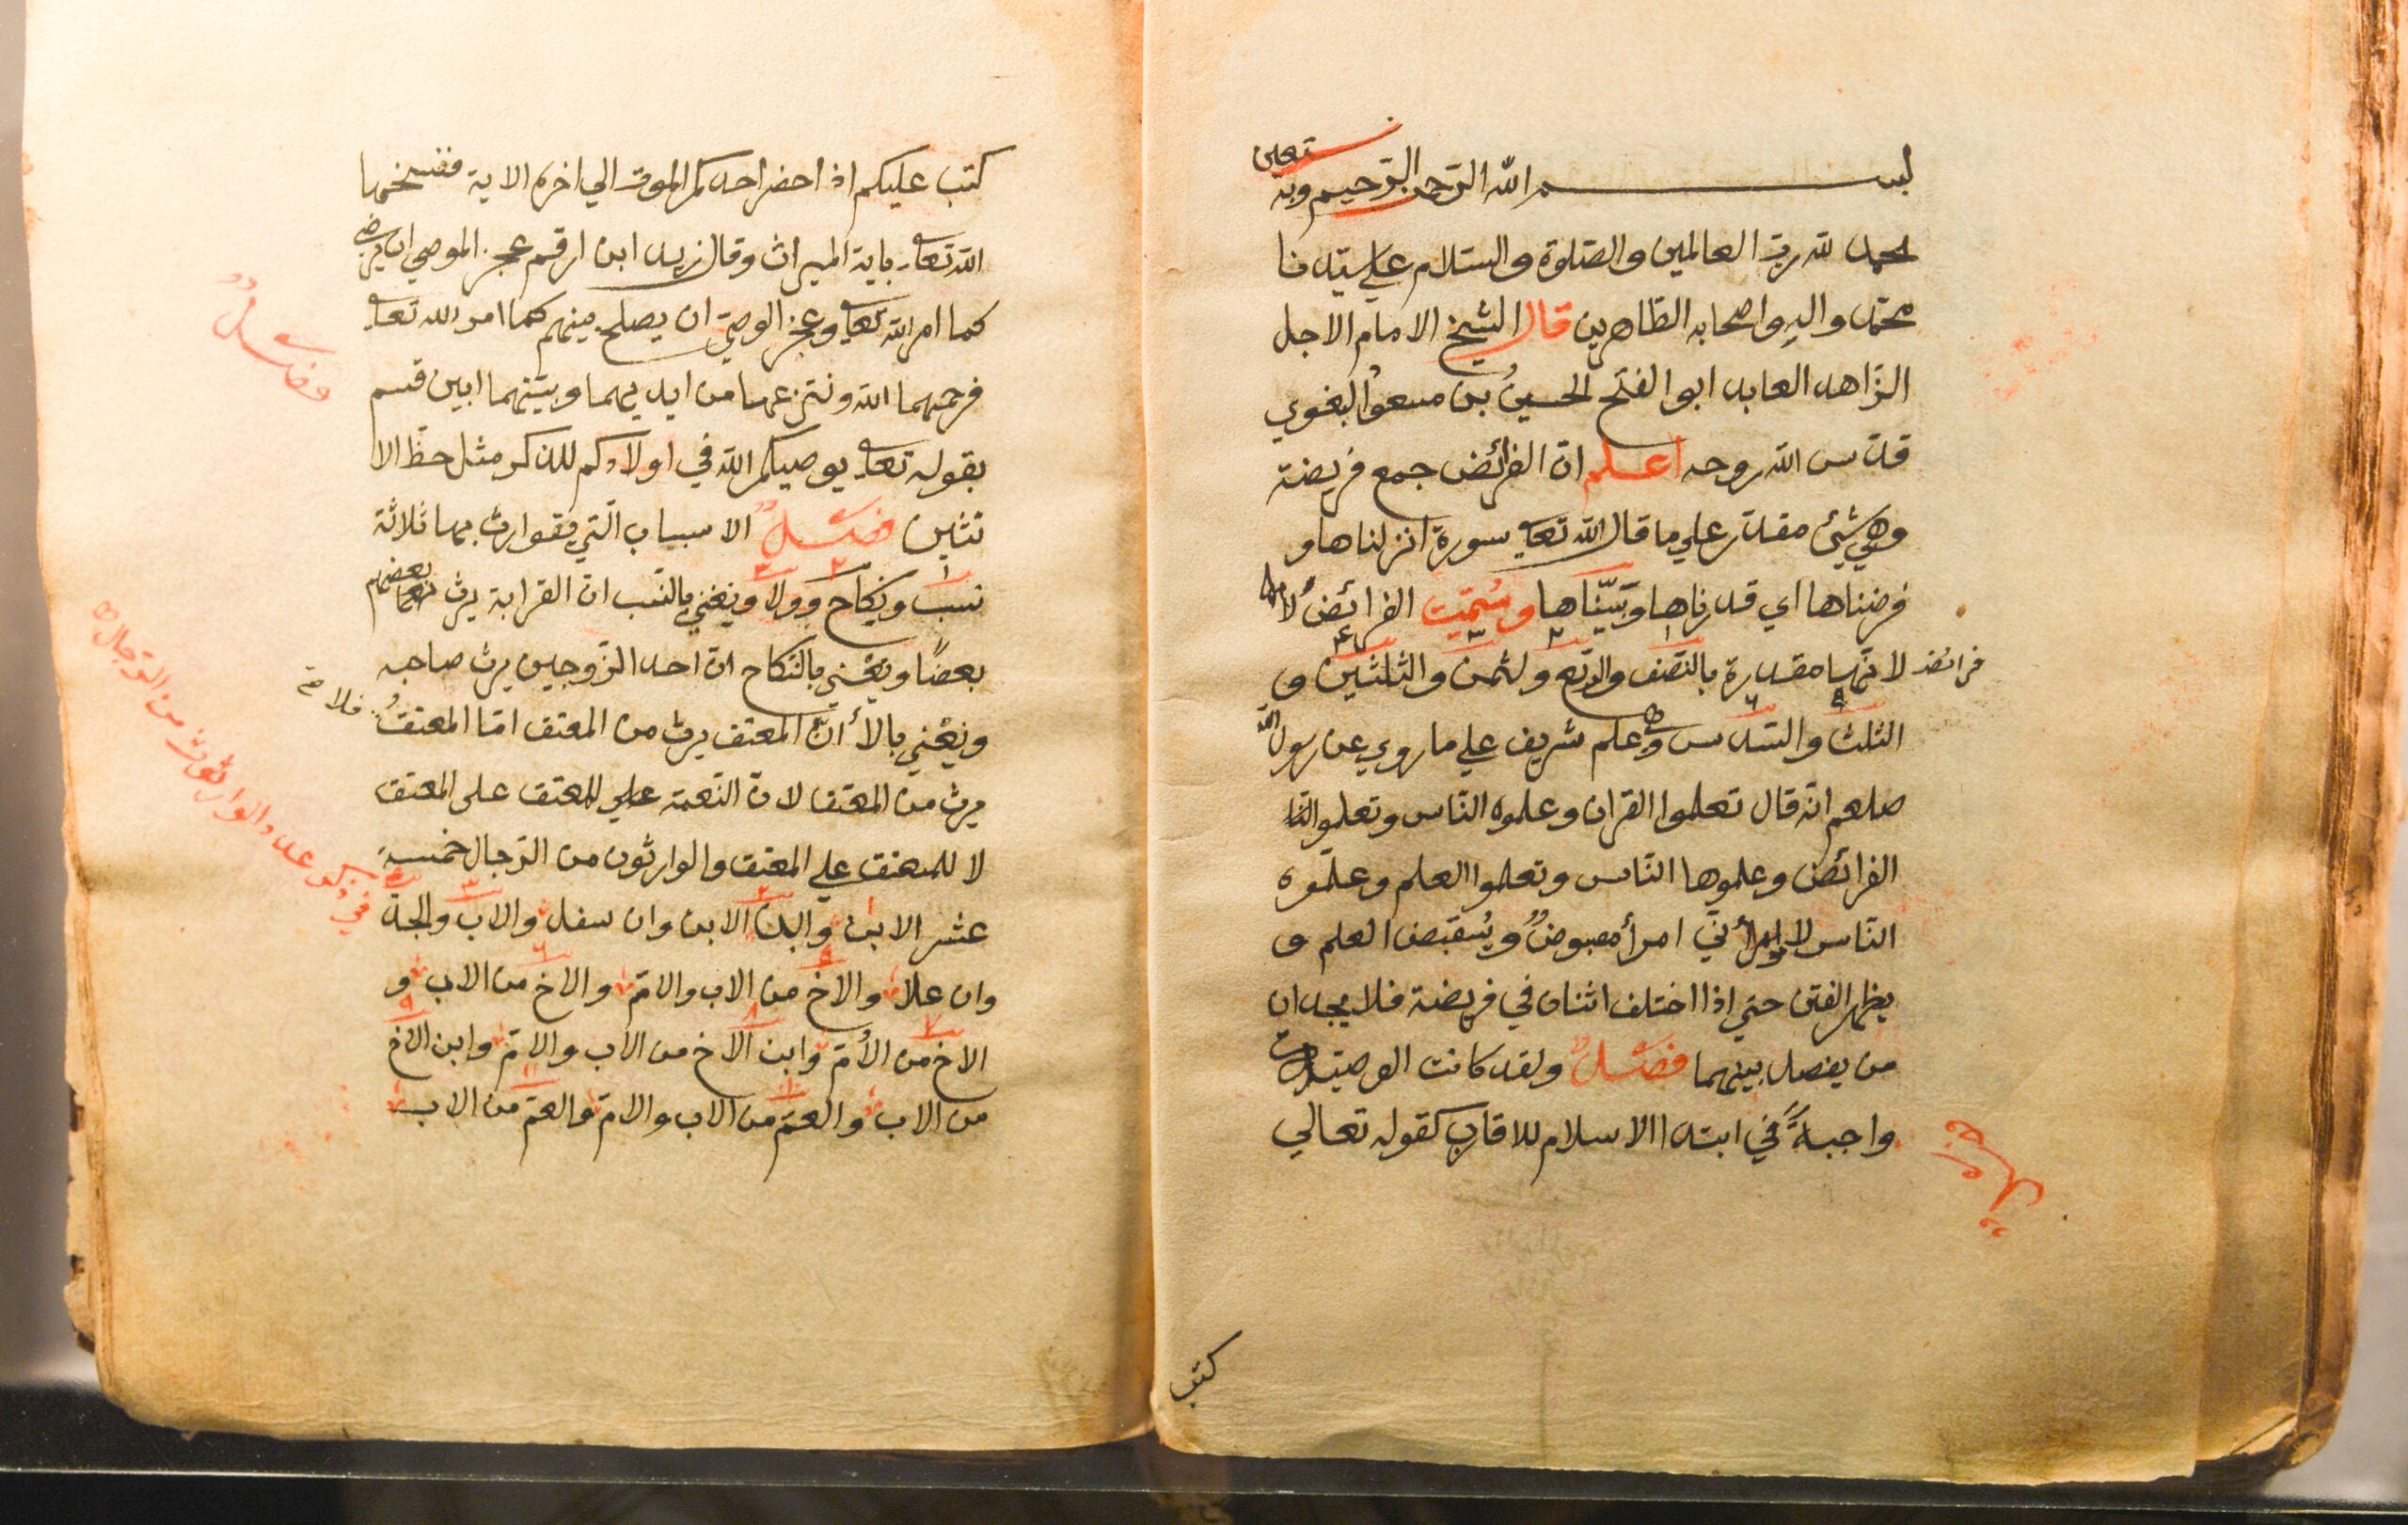 بسم الله الرحمن الرحيم وبه نستعين
لحمد لله ربّ العالمين والصّلوة والسّلام علي سيّدنا
محمّد واله واصحابه الطّاهرين قال الشيخ الامام الاجل
الزّاهد العابد ابو الفتح الحسينُ بن مسعود البغوي
قدّس الله روحه اعلم انّ الفرائض جمع فريضة
وهي شيئ مقدّر علي ما قال الله تعالي سورة انزلناها و
فرضناها اي قدرناها وبيّنّاها وسُمّيت الفرائضُ
فرائض لانّها مقدرة بالنّصف والرّبع ولثمن والثلثين و
الثلث والسّدس وهي علم شريف علي ما روي عن رسول الله
صلعم انّه قال تعلموا القران وعلموه النّاس وتعلموا
الفرائض وعلموها النّاس وتعلموا العلم وعلّموه
النّاس أنّي امرأ مقبوضٌ ويُقبض العلم و
يظهر الفتن حتي اذا اختلف اثنان في فريضة فلا يجدان
من يفصل بينهما فصل ولقد كانت الوصيّة
واجبةً في ابتدا الاسلام للاقارب كقوله تعالي
كتب
كتب عليكم اذا حضر احدكم الموت الي اخره الاية ففسخها
الله تعالي باية الميراث وقال زيد ابن ارقم عجز الموصي ان يرضي
كما امر الله تعالي وعجز الوصيّ ان يصلح بينهم كما امر الله تعالي
فرحمهما الله ونتزعها من ايديهما وبيّنهما ابين قسم
بقوله تعالي يوصيكم الله في اولادكم للذكر مثل حظّ الا
نثين فصل الاسباب الّتي يتوارث بها ثلاثة
نسب ونكاح وولا ونعني بالنّسب انّ القرابة يرث بعضهم
بعضًا ونعني بالنّكاح انّ احد الزّوجين يرث صاحبه
ونعني بالولا أنّ المعتِق يرث من المعتق امّا المعتقُ فلا
يرث من المعتق لانّ النّعمة علي للمعتق على المعتق
لا للمعتق علي المعتق والوارثون من الرّجال خمسة
عشر الابن وابن الابن وان سفل والاب والجدّ
وان علا والاخ من الاب والامّ والاخ من الاب و
الاخ من الأمّ وابن الاخ من الاب والامّ وابن الاخ
من الاب والعمّ من الاب والامّ والعمّ من الاب
فصل
في ذكر عدد الوارثون من الرّجال